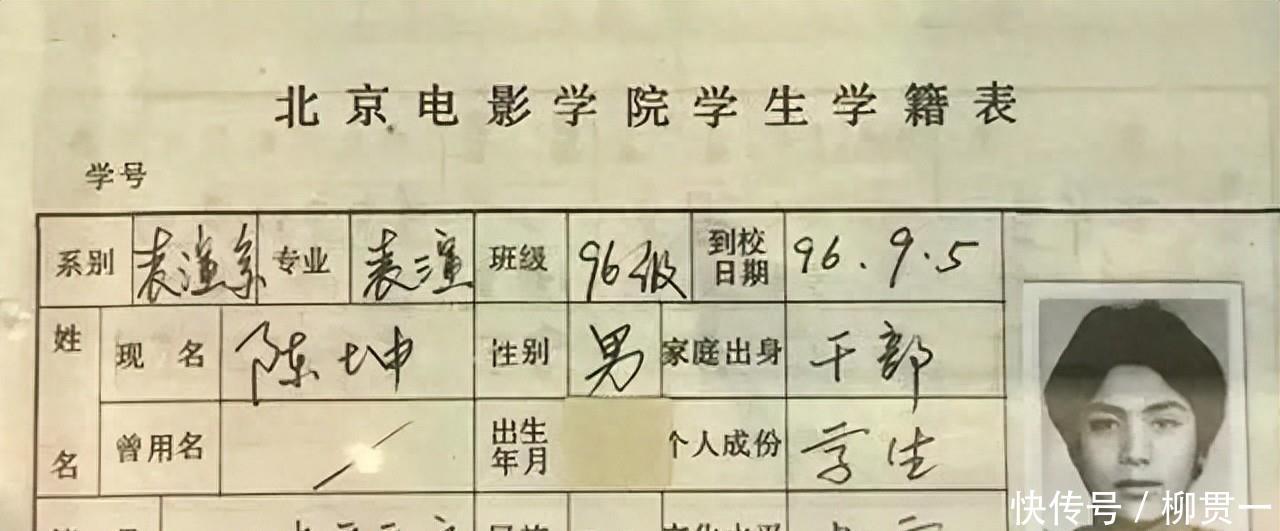 北京电影学院学生学籍表
学号
系别 表演系 专业 表演 班级 96级 到校日期 96.9.5
姓名 现名 陈坤 性别 男 家庭出身 干部
曾用名 / 出生年月 个人成份 学生
快传号 / 柳贯一